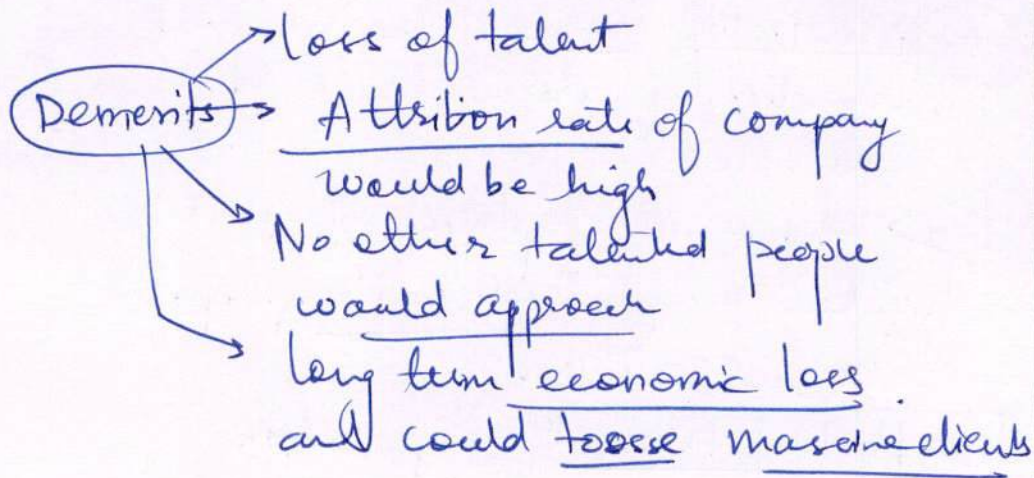 loss of talent
Demerits Attribon rate of company
would be high
No other talented people
would approach
long term economic loss
and could toosse massive clients